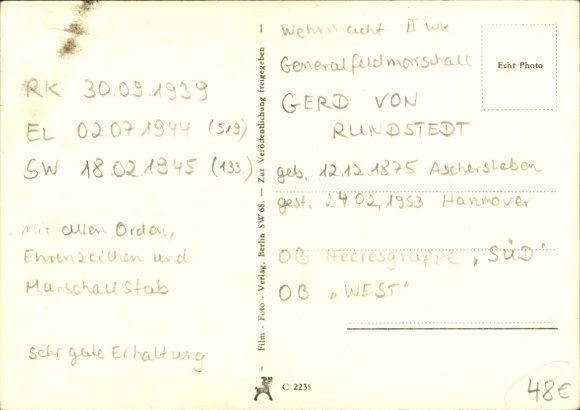 RK 30.09.1939
EL 02.07.1944 (519)
SW 18.02.1945 (133.)
mit allen Orden,
Ehrenzeichen und
Marschallstab
sehr gute Erhaltung
Film - Foto - Verlag, Berlin SW 68. — Zur Veröffentlichung freigegeben
C 2235
Wehrmacht II WK
Generalfeldmarschall
GERD VON
RUNDSTEDT
geb. 12.12.1875 Aschersleben
gest. 24.02.1953 Hannover
OB Heeresgruppe „SÜD"
OB „WEST"
Echt Photo
48€